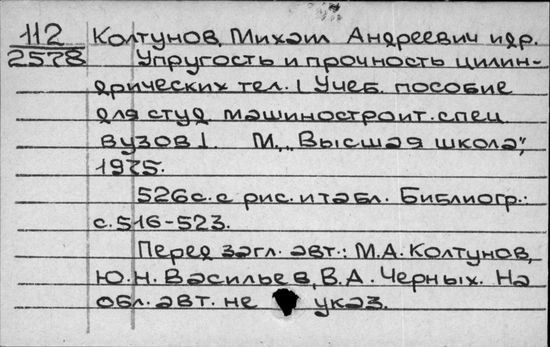 112
2578
Колтунов, Михаил Андреевич и др.
Упругость и прочность цилин-
дрических тел. [Учеб. пособие
для студ. машиностроит. спец.
вузов]. М., „Высшая школа",
1975.
526 с. с рис. и табл. Библиогр.:
с. 516-523.
Перед загл. авт.: М.А. Колтунов,
Ю.Н. Васильев, В.А. Черных. На
обл. авт. не указ.